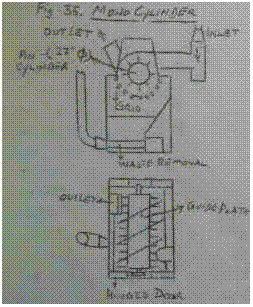 Fig. 35. MONO CYLINDER
INLET
OUTLET
PIN
CYLINDER
GRID
WASTE REMOVAL
OUTLET
GUIDE PLATE
HINGED DOOR